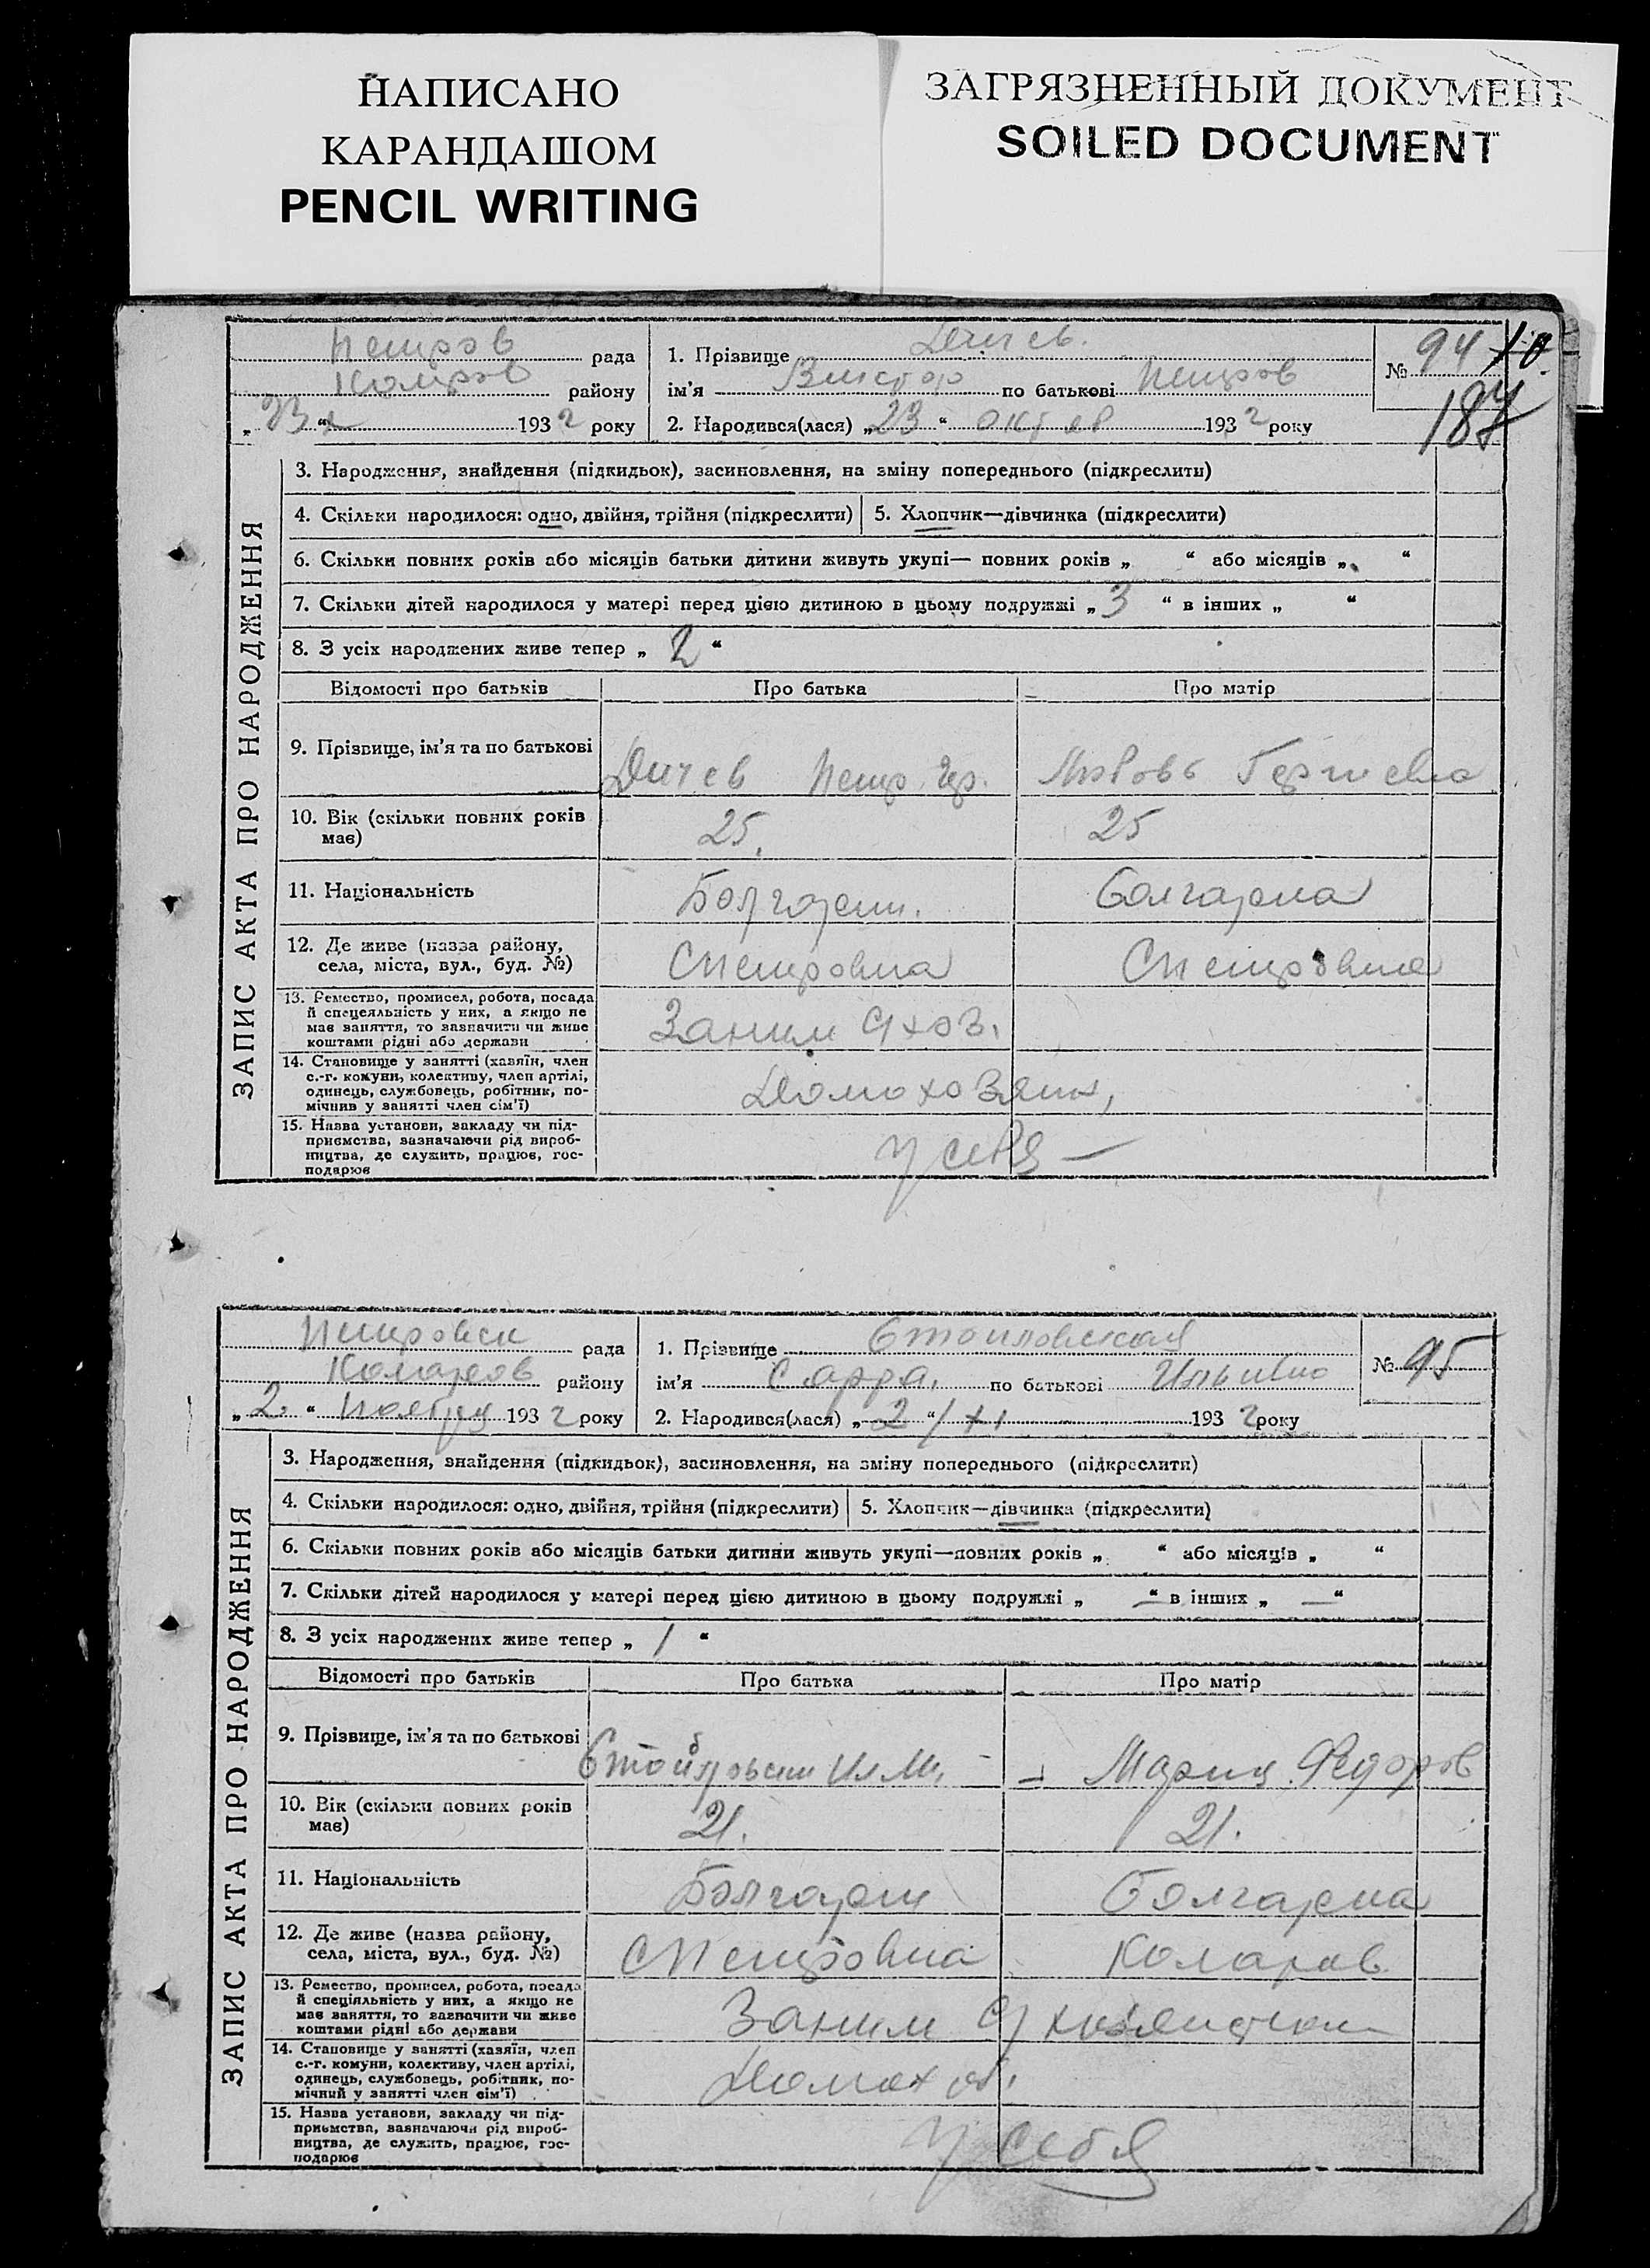 НАПИСАНО
КАРАНДАШОМ
PENCIL WRITING
ЗАГРЯЗНЕННЫЙ ДОКУМЕНТ
SOILED DOCUMENT
Петров рада
району
„23“ 1932 року
1. Прізвище Дичев.
ім'я Виктор по батькові Петров
2. Народився(лася) „23“ октяб 1932 року
№ 94
187
ЗАПИС АКТА ПРО НАРОДЖЕННЯ
3. Народження, знайдення (підкидьок), засиновлення, на зміну попереднього (підкреслити)
4. Скільки народилося: одно, двійня, трійня (підкреслити) 5. Хлопчик—дівчинка (підкреслити)
6. Скільки повних років або місяців батьки дитини живуть укупі— повних років „ “ або місяців „ “
7. Скільки дітей народилося у матері перед цією дитиною в цьому подружжі „ 3 “ в інших „ “
8. З усіх народжених живе тепер „ 2 “
Відомості про батьків Про батька Про матір
9. Прізвище, ім'я та по батькові Дичев Петр Любовь Георгиевна
10. Вік (скільки повних років має) 25. 25
11. Національність Болгарин. болгарка
12. Де живе (назва району, села, міста, вул., буд. №) С Петровка С Петровка
13. Ремество, промисел, робота, посада
й спеціяльність у них, а якщо не
має заняття, то зазначити чи живе
коштами рідні або держави
14. Становище у занятті (хазяїн, член
с.-г. комуни, колективу, член артілі,
одинець, службовець, робітник, по-
мічник у занятті член сім'ї) Домохозяин,
15. Назва установи, закладу чи під-
приємства, зазначаючи рід вироб-
ництва, де служить, працює, гос-
подарює У себя —
Петровск рада
Коларов району
„2.“ Ноября 1932 року
1. Прізвище Стойловская
ім'я Сарра. по батькові Ильинна
2. Народився(лася) „2“/XI 1932 року
№ 95
ЗАПИС АКТА ПРО НАРОДЖЕННЯ
3. Народження, знайдення (підкидьок), засиновлення, на зміну попереднього (підкреслити)
4. Скільки народилося: одно, двійня, трійня (підкреслити) 5. Хлопчик—дівчинка (підкреслити)
6. Скільки повних років або місяців батьки дитини живуть укупі—повних років „ “ або місяців „ “
7. Скільки дітей народилося у матері перед цією дитиною в цьому подружжі „ —“ в інших „ —“
8. З усіх народжених живе тепер „ 1 “
Відомості про батьків Про батька Про матір
9. Прізвище, ім'я та по батькові — Мария Федоров
10. Вік (скільки повних років має) 21. 21.
11. Національність Болгарин Болгарка
12. Де живе (назва району, села, міста, вул., буд. №) С Петровка Коларов
13. Ремество, промисел, робота, посада
й спеціяльність у них, а якщо не
має заняття, то зазначити чи живе
коштами рідні або держави
14. Становище у занятті (хазяїн, член
с.-г. комуни, колективу, член артілі,
одинець, службовець, робітник, по-
мічний у занятті член сім'ї) Домохоз.
15. Назва установи, закладу чи під-
приємства, зазначаючи рід вироб-
ництва, де служить, працює, гос-
подарює У себя